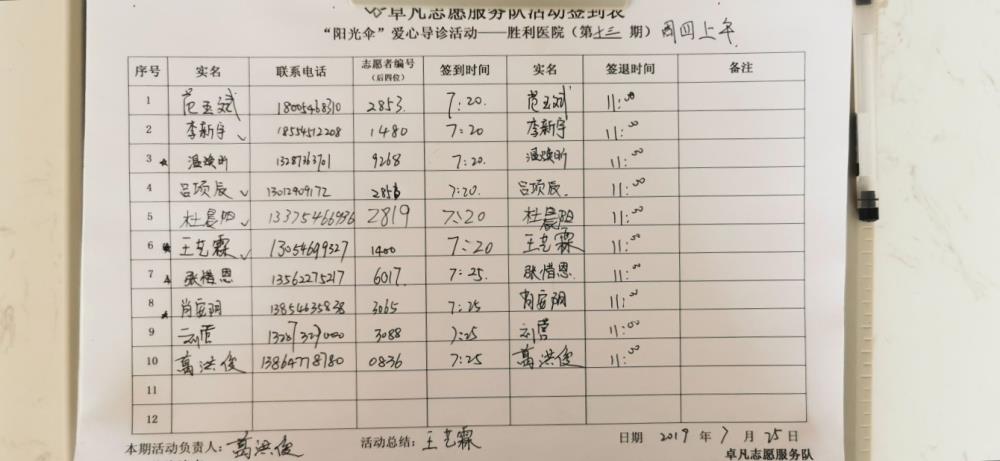 卓凡志愿服务队活动签到表
“阳光伞”爱心导诊活动——胜利医院（第十三期）周四上午
序号 实名 联系电话 志愿者编号（后四位） 签到时间 实名 签退时间 备注
1 范玉斌 18005468310 2853 7:20 范玉斌 11:00
2 李新宇 18554512208 1480 7:20 李新宇 11:00
3 温焕昕 13287363701 9268 7:20 温焕昕 11:00
4 吕项辰 13012909172 7:20 吕项辰 11:00
5 杜晨阳 13375466996 2819 7:20 杜晨阳 11:00
6 王艺霖 13054699327 1400 7:20 王艺霖 11:00
7 张惜恩 13562275217 6017 7:25 张惜恩 11:00
8 肖安玥 13854635838 3065 7:25 肖安玥 11:00
9 3088 7:25 11:00
10 葛洪俊 13864778780 0836 7:25 葛洪俊 11:00
11
12
本期活动负责人：葛洪俊 活动总结：王艺霖 日期 2019 年 7 月 25 日
卓凡志愿服务队